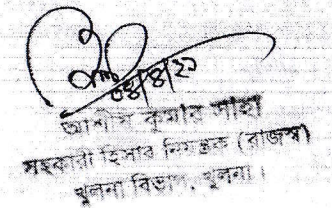 ০৪/৪/২১
আশীষ কুমার সাহা
সহকারী হিসাব নিয়ন্ত্রক (রাজস্ব)
খুলনা বিভাগ, খুলনা।